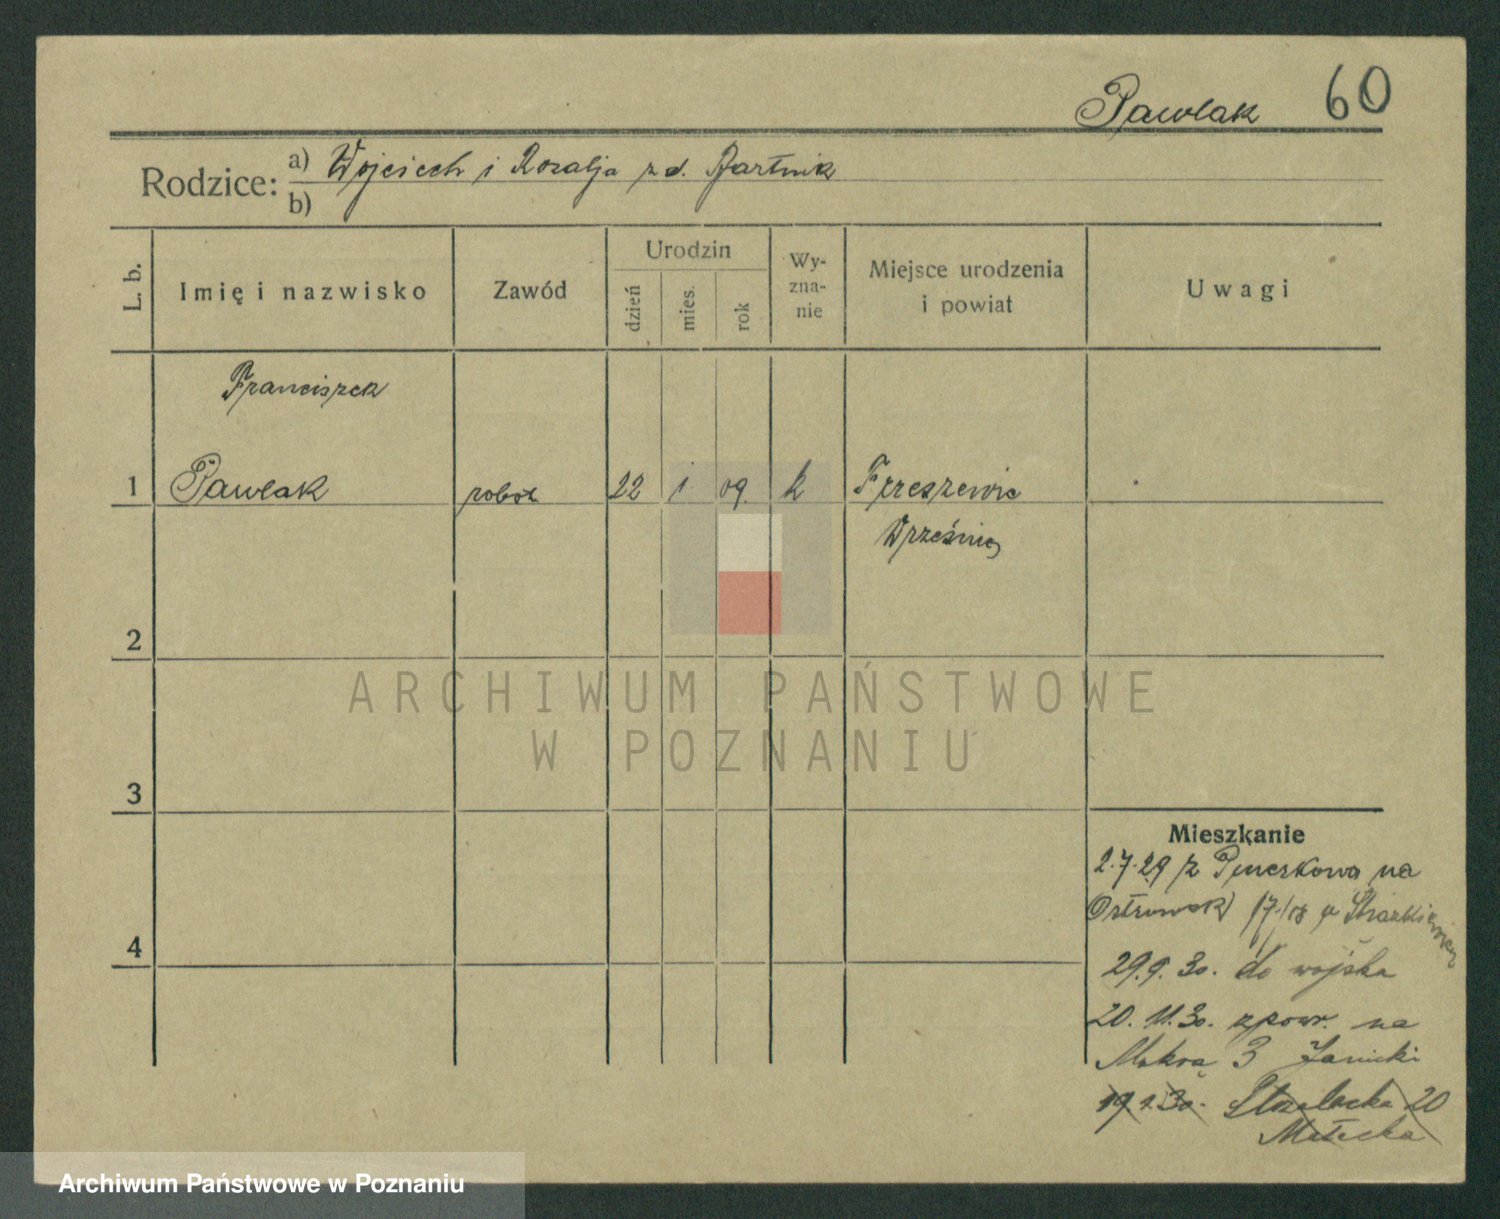 Pawlak 60
Rodzice: a) Wojciech i Rozalja z d. Bartnik
b)
L. b.
Imię i nazwisko
Zawód
Urodzin
dzień
mies.
rok
Wy-
zna-
nie
Miejsce urodzenia
i powiat
Uwagi
Franciszek
1 Pawlak robot 22 1 09. k
Września
2
ARCHIWUM PAŃSTWOWE
W POZNANIU
3
Mieszkanie
2.7.29 z na
17/18
4
29.9.30. do wojska
20.11.30. z powr. na
Mokrą 3 Janicki
19.1.30. 20
Małecka
Archiwum Państwowe w Poznaniu